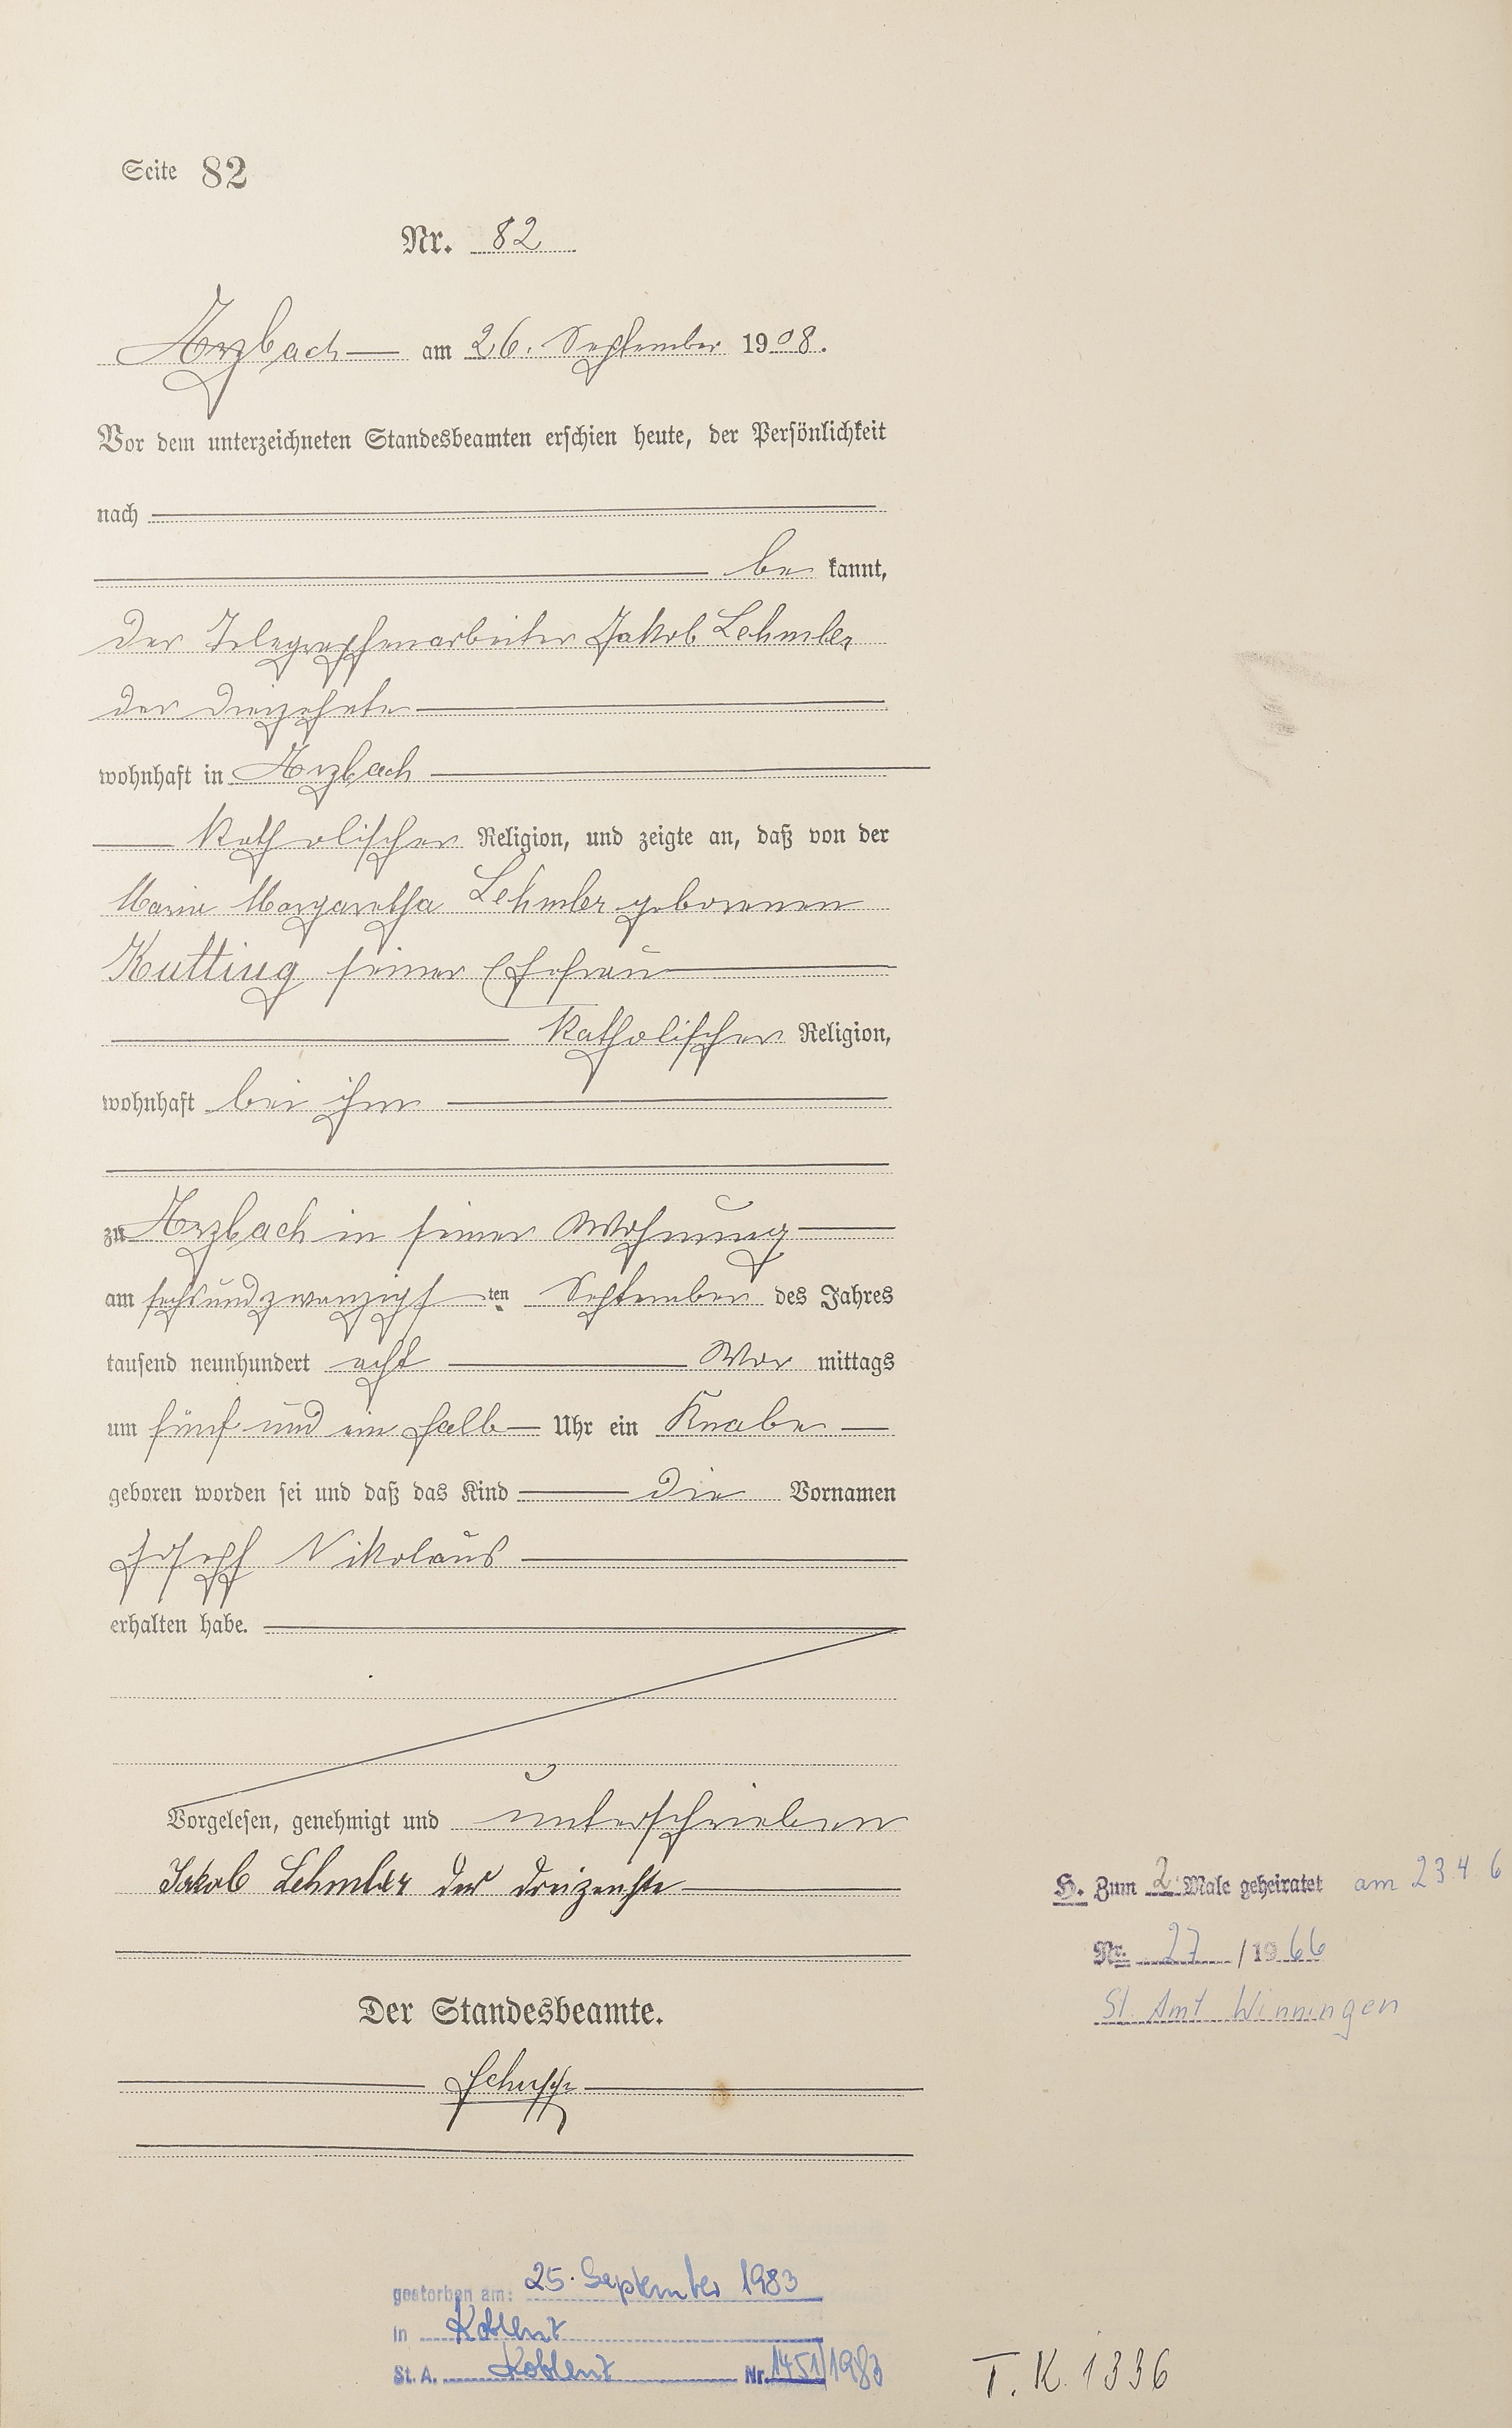 Seite 82
Nr. 82
Arzbach am 26. September 1908.
Vor dem unterzeichneten Standesbeamten erschien heute, der Persönlichkeit
nach
be kannt,
der Telegraphenarbeiter Jakob Lehmler
der Dreizehnte
wohnhaft in Arzbach
katholischer Religion, und zeigte an, daß von der
Maria Margaretha Lehmler geborenen
Kutting seiner Ehefrau
katholischer Religion,
wohnhaft bei ihm
zu Arzbach in seiner Wohnung
am sechsundzwanzigsten September des Jahres
tausend neunhundert acht Vor mittags
um fünf und ein halb Uhr ein Knabe
geboren worden sei und daß das Kind die Vornamen
Joseph Nikolaus
erhalten habe.
Vorgelesen, genehmigt und unterschrieben
Jakob Lehmler der Dreizenhte
Der Standesbeamte.
Schupp
H. Zum 2. Male geheiratet am 23.4.6
Nr. 27 / 1966
St. Amt Winningen
gestorben am: 25. September 1983
in Koblenz
St. A. Koblenz Nr. 1451/1983
T. K. 1336